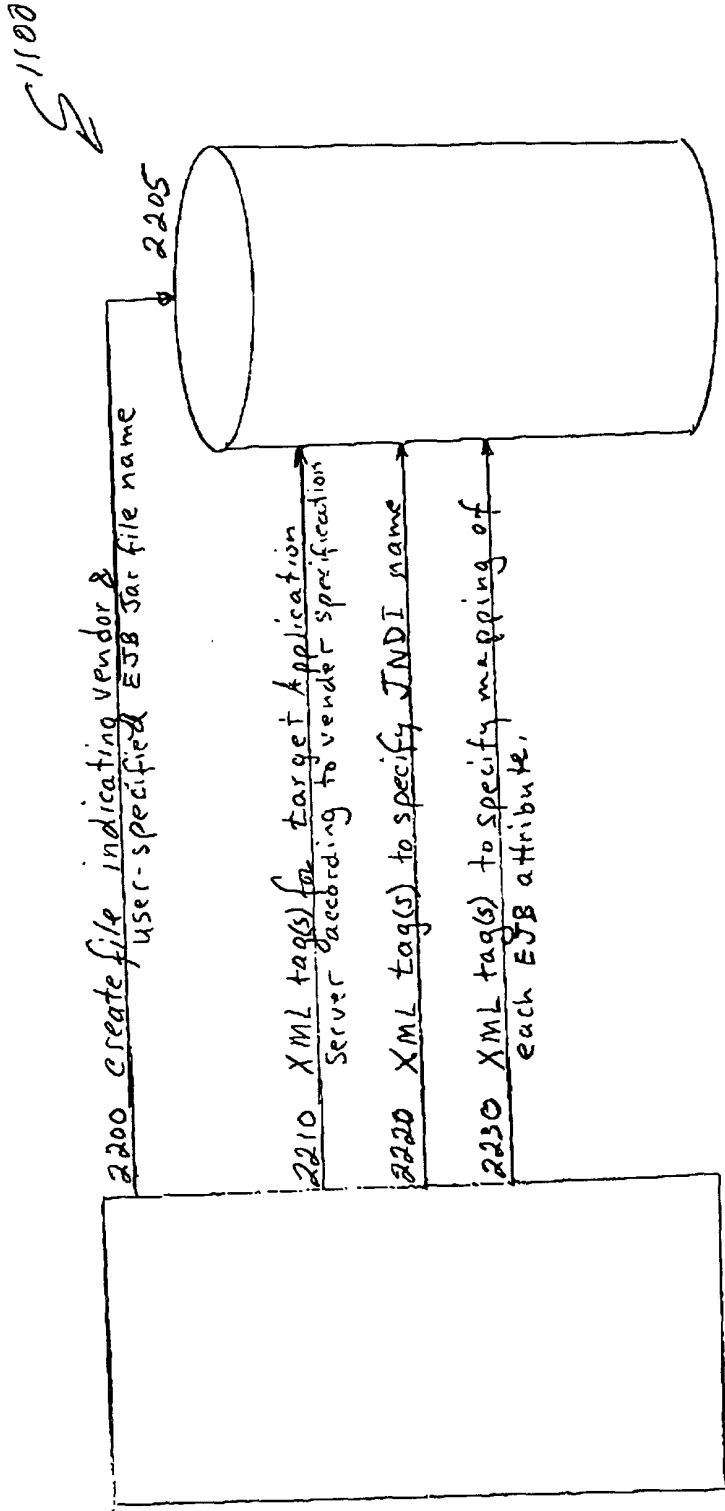 S1100
2205
2200 create file indicating vendor &
user-specified EJB Jar file name
2210 XML tag(s) for target Application
Server according to vender specification
2220 XML tag(s) to specify JNDI name
2230 XML tag(s) to specify mapping of
each EJB attribute.